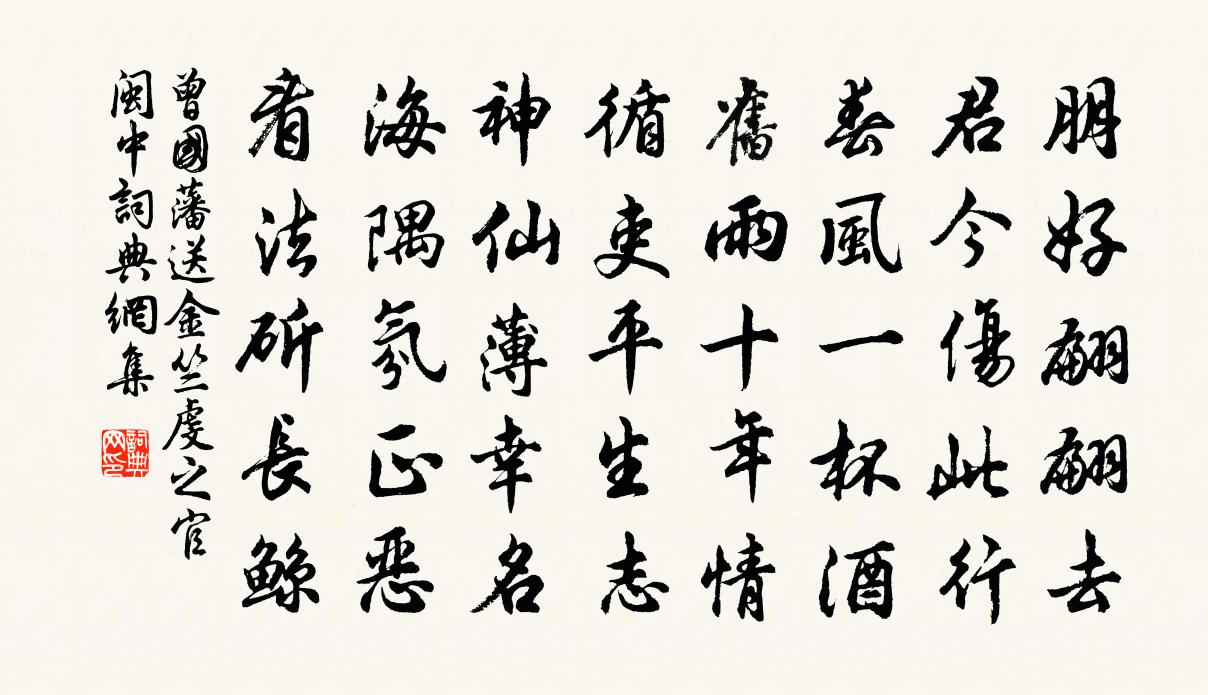 朋好翩翩去
君今傷此行
春風一杯酒
舊雨十年情
循吏平生志
神仙薄幸名
海隅氛正惡
看法斫長鯨
曾國藩送金竺虔之官
閩中詞典網集
詞典网印